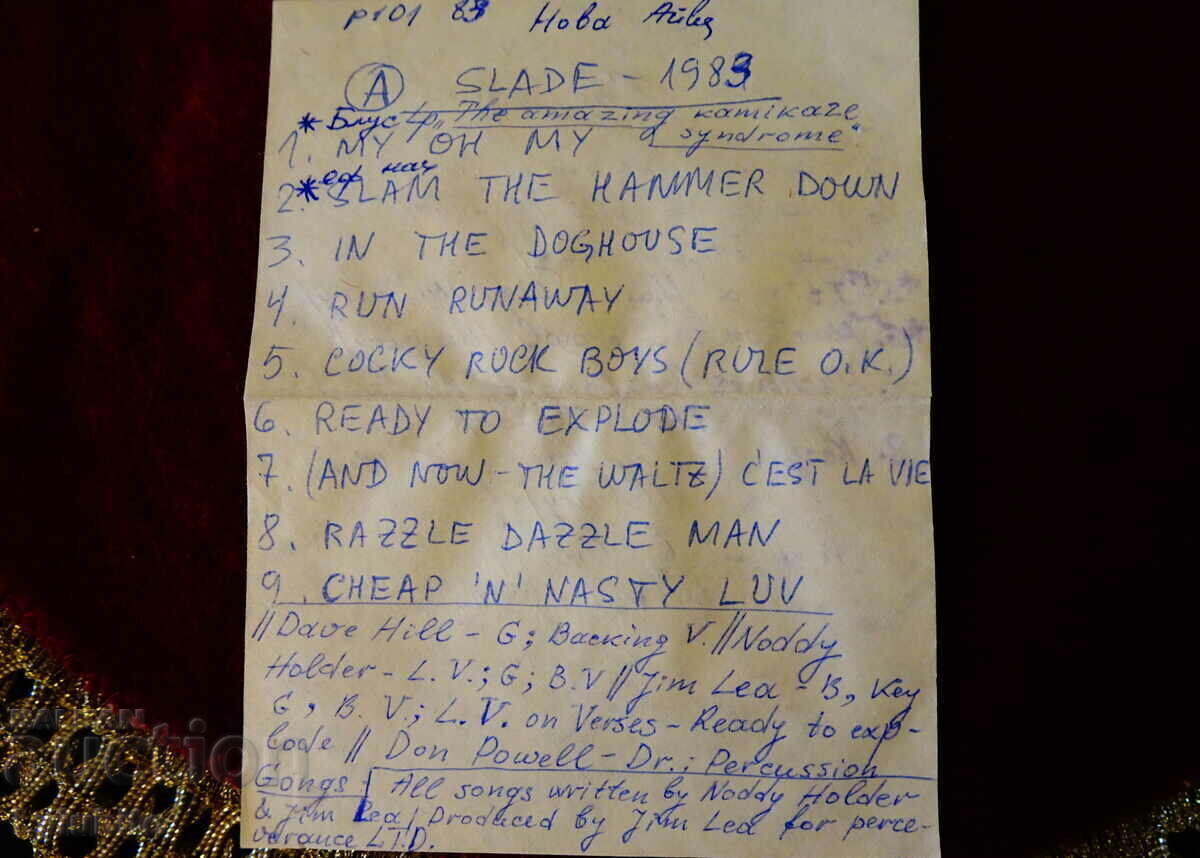 83 Нова
A SLADE - 1983
* Блус Lp „The amazing kamikaze
syndrome"
1. MY OH MY
2. * SLAM THE HAMMER DOWN
3. IN THE DOGHOUSE
4. RUN RUNAWAY
5. COCKY ROCK BOYS (RULE O.K.)
6. READY TO EXPLODE
7. (AND NOW - THE WALTZ) C'EST LA VIE
8. RAZZLE DAZZLE MAN
9. CHEAP 'N' NASTY LUV
// Dave Hill - G; Backing V. // Noddy
Holder - L. V.; G; B.V // Jim Lea - B, Key
G, B. V.; L.V. on Verses - Ready to exp-
lode // Don Powell - Dr.; Percussion
Songs: All songs written by Noddy Holder
& Jim Lea; Produced by Jim Lea for perce-
verance LT.D.
auction